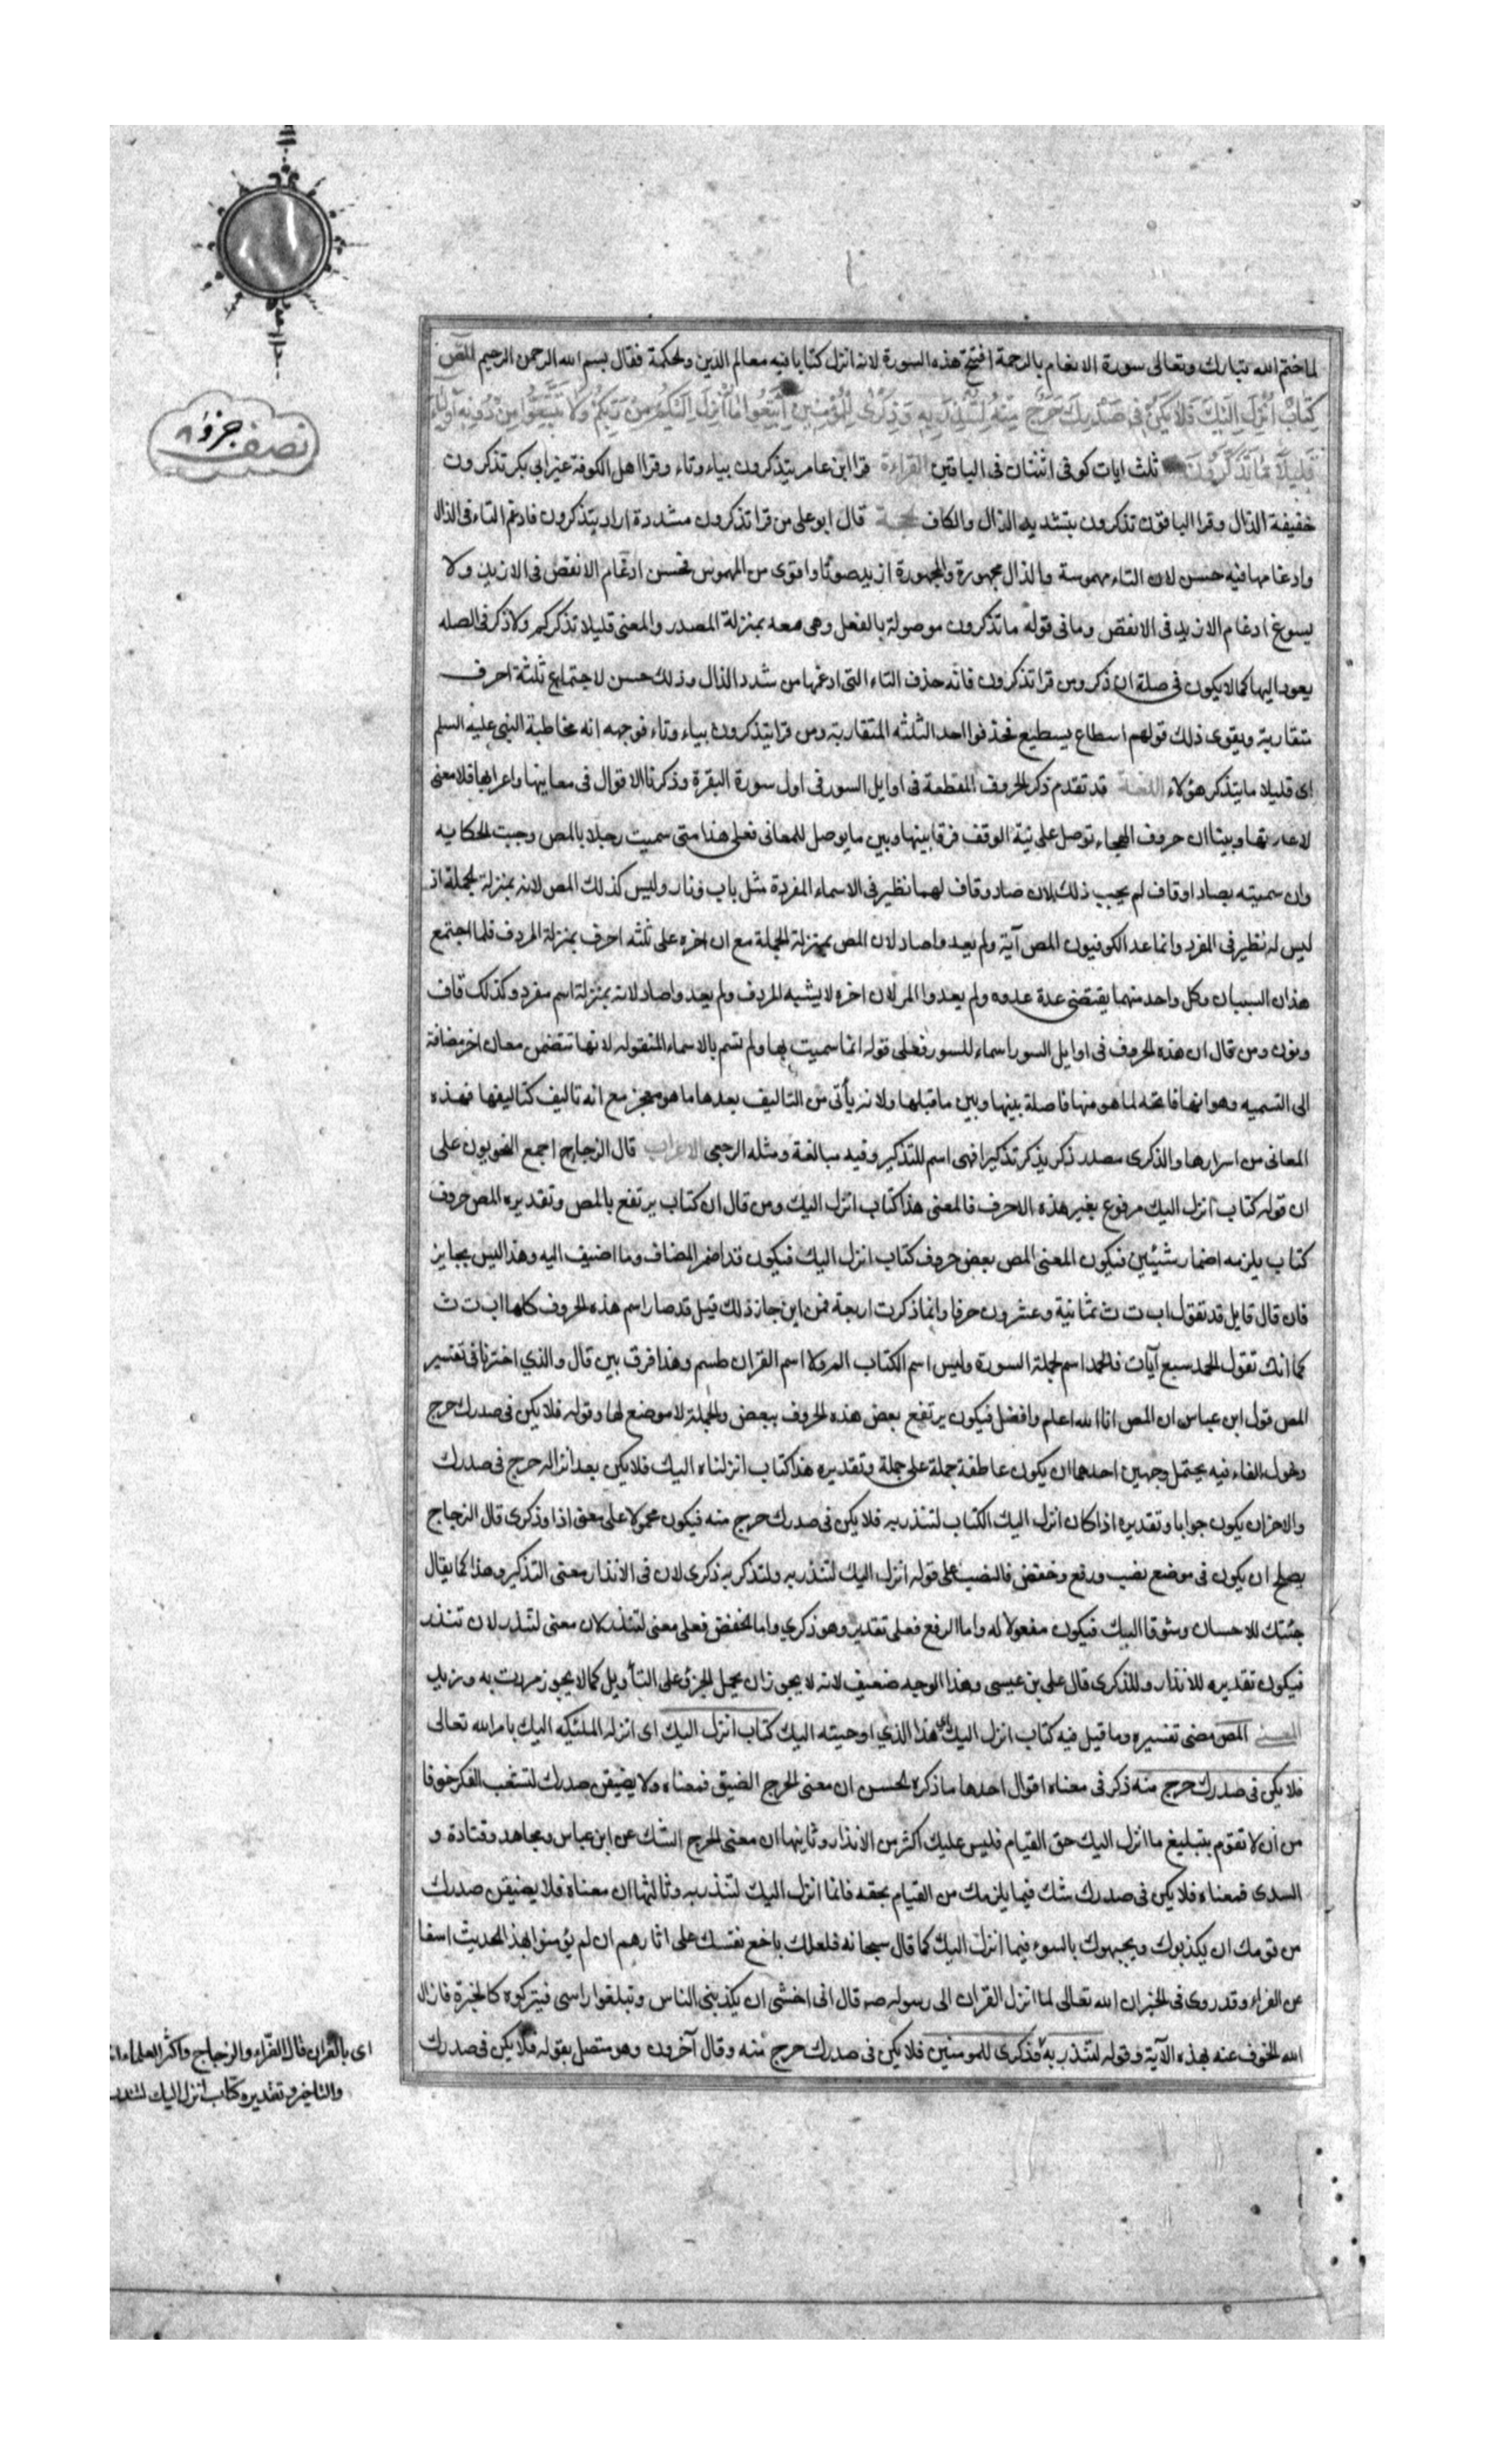 لما ختم الله تبارك وتعالى سورة الانعام بالرحمة افتتح هذه السورة لانه انزل كتابا فيه معالم الدين والحكمة فقال بسم الله الرحمن الرحيم المص
كِتَابٌ اُنْزِلَ اِلَيْكَ فَلَا يَكُنْ فِى صَدْرِكَ حَرَجٌ مِنْهُ لِتُنْذِرَ بِهِ وَذِكْرَى لِلْمُؤْمِنِينَ اِتَّبِعُوا مَا اُنْزِلَ اِلَيْكُمْ مِنْ رَبِّكُمْ وَلَا تَتَّبِعُوا مِنْ دُونِهِ اَوْلِيَاءَ
قَلِيلًا مَا تَذَكَّرُونَ ثلث ايات كوفى اثنتان فى الباقين القراءة قرا ابن عامر يتذكرون بياء وتاء وقرا اهل الكوفة غير ابي بكر تذكرون
خفيفة الذال وقرا الباقون تذكرون بتشديد الذال والكاف الحجة قال ابو على من قرا تذكرون مشددة اراد يتذكرون فادغم التاء فى الذال
وادغامها فيه حسن لان التاء مهموسة والذال مجهورة والمجهورة ازيد صوتا واقوى من المهموس فحسن ادغام الانقص فى الازيد ولا
يسوغ ادغام الازيد فى الانقص وما فى قوله ما تذكرون موصولة بالفعل وهى معه بمنزلة المصدر والمعنى قليلا تذكركم ولا ذكر فى الصله
يعود اليها كما لا يكون فى صلة ان ذكر ومن قرا تذكرون فانه حذف التاء التى ادغمها من شدد الذال وذلك حسن لاجتماع ثلثة احرف
متقاربة ويقوى ذلك قولهم اسطاع يسطيع فحذفوا احد الثلثه المتقاربة ومن قرا يتذكرون بياء وتاء فوجهه انه مخاطبة النبى عليه السلم
اى قليلا ما يتذكر هؤلاء اللغة قد تقدم ذكر الحروف المقطعة فى اوايل السور فى اول سورة البقرة وذكرنا الاقوال فى معانيها واعرابها فلا معنى
لاعادتها وبينا ان حروف الهجاء توصل على نية الوقف فرقا بينها وبين ما يوصل للمعانى فعلى هذا متى سميت رجلا بالمص وجبت الحكايه
وان سميته بصاد او قاف لم يجب ذلك لان صاد وقاف لهما نظير فى الاسماء المفردة مثل باب ونار وليس كذلك المص لانه بمنزلة الجملة اذ
ليس له نظير فى المفرد وانما عد الكوفيون المص آية ولم يعدوا صاد لان المص بمنزلة الجملة مع ان اخره على ثلثه احرف بمنزلة المردف فلما اجتمع
هذان السببان وكل واحد منهما يقتضى عدة عدوه ولم يعدوا المر لان اخره لا يشبه المردف ولم يعدوا صاد لانه بمنزلة اسم مفرد وكذلك قاف
ونون ومن قال ان هذه الحروف فى اوايل السور اسماء للسور فعلى قوله انما سميت بها ولم تسم بالاسماء المنقوله لانها تتضمن معان اخر مضافة
الى التسميه وهو انها فاتحه لما هو منها فاصلة بينها وبين ما قبلها ولانه يأتى من التاليف بعدها ما هو معجز مع انه تاليف كتاليفها فهذه
المعانى من اسرارها والذكرى مصدر ذكر يذكر تذكيرا فهى اسم للتذكير وفيه مبالغة ومثله الرجعى الاعراب قال الزجاج اجمع النحويون على
ان قوله كتاب انزل اليك مرفوع بغير هذه الاحرف فالمعنى هذا كتاب انزل اليك ومن قال ان كتاب يرتفع بالمص وتقديره المص حروف
كتاب يلزمه اضمار شيئين فيكون المعنى المص بعض حروف كتاب انزل اليك فيكون قد اضمر المضاف وما اضيف اليه وهذا ليس بجايز
فان قال قايل قد تقول ا ب ت ث ثمانية وعشرون حرفا وانما ذكرت اربعة فمن اين جاز ذلك قيل قد صار اسم هذه الحروف كلها ا ب ت ث
كما انك تقول الحمد سبع آيات فالحمد اسم لجملة السورة وليس اسم الكتاب الم ولا اسم القران طسم وهذا فرق بين قال والذي اخترنا فى تفسير
المص قول ابن عباس ان المص انا الله اعلم وافضل فيكون يرتفع بعض هذه الحروف ببعض والجملة لا موضع لها وقوله فلا يكن فى صدرك حرج
دخول الفاء فيه يحتمل وجهين احدهما ان يكون عاطفة جملة على جملة وتقديره هذا كتاب انزلناه اليك فلا يكن بعد انزاله حرج فى صدرك
والاخر ان يكون جوابا وتقديره اذا كان انزل اليك الكتاب لتنذر به فلا يكن فى صدرك حرج منه فيكون محمولا على معنى اذا وذكرى قال الزجاج
يصلح ان يكون فى موضع نصب ورفع وخفض فالنصب على قوله انزل اليك لتنذر به ولتذكر به ذكرى لان فى الانذار معنى التذكير وهذا كما يقال
جئتك للاحسان وشوقا اليك فيكون مفعولا له واما الرفع فعلى تقدير وهو ذكري واما الخفض فعلى معنى لتنذر لان معنى لتنذر لان تنذر
فيكون تقديره للانذار وللذكرى قال على بن عيسى وهذا الوجه ضعيف لانه لا يجوز ان يحمل الجر على التأويل كما لا يجوز مررت به وزيد
المعنى المص مضى تفسيره وما قيل فيه كتاب انزل اليك اى هذا الذي اوحيته اليك كتاب انزل اليك اى انزله الملئكه اليك بامر الله تعالى
فلا يكن فى صدرك حرج منه ذكر فى معناه اقوال احدها ما ذكره الحسن ان معنى الحرج الضيق فمعناه ولا يضيقن صدرك لتشعب الفكر خوفا
من ان لا تقوم بتبليغ ما انزل اليك حق القيام فليس عليك اكثر من الانذار وثانيها ان معنى الحرج الشك عن ابن عباس ومجاهد وقتادة و
السدى فمعناه فلا يكن فى صدرك شك فيما يلزمك من القيام بحقه فانما انزل اليك لتنذر به وثالثها ان معناه فلا يضيقن صدرك
من قومك ان يكذبوك ويجبهوك بالسوء فيما انزل اليك كما قال سبحانه فلعلك باخع نفسك على اثارهم ان لم يؤمنوا بهذا الحديث اسفا
عن الفراء وقد روى فى الخبر ان الله تعالى لما انزل القران الى رسوله صه قال انى اخشى ان يكذبنى الناس وتبلغوا راسى فيتركوه كالخبزة فازال
الله الخوف عنه بهذه الآية وقوله لتنذر به وذكرى للمومنين فلا يكن فى صدرك حرج منه وقال آخرون وهو متصل بقوله فلا يكن فى صدرك
نصف جزؤ ٨
اى بالقران قال الفرّاء والزجاج واكثر العلماء
والتاخير وتقديره كتاب انزل اليك لتنذر